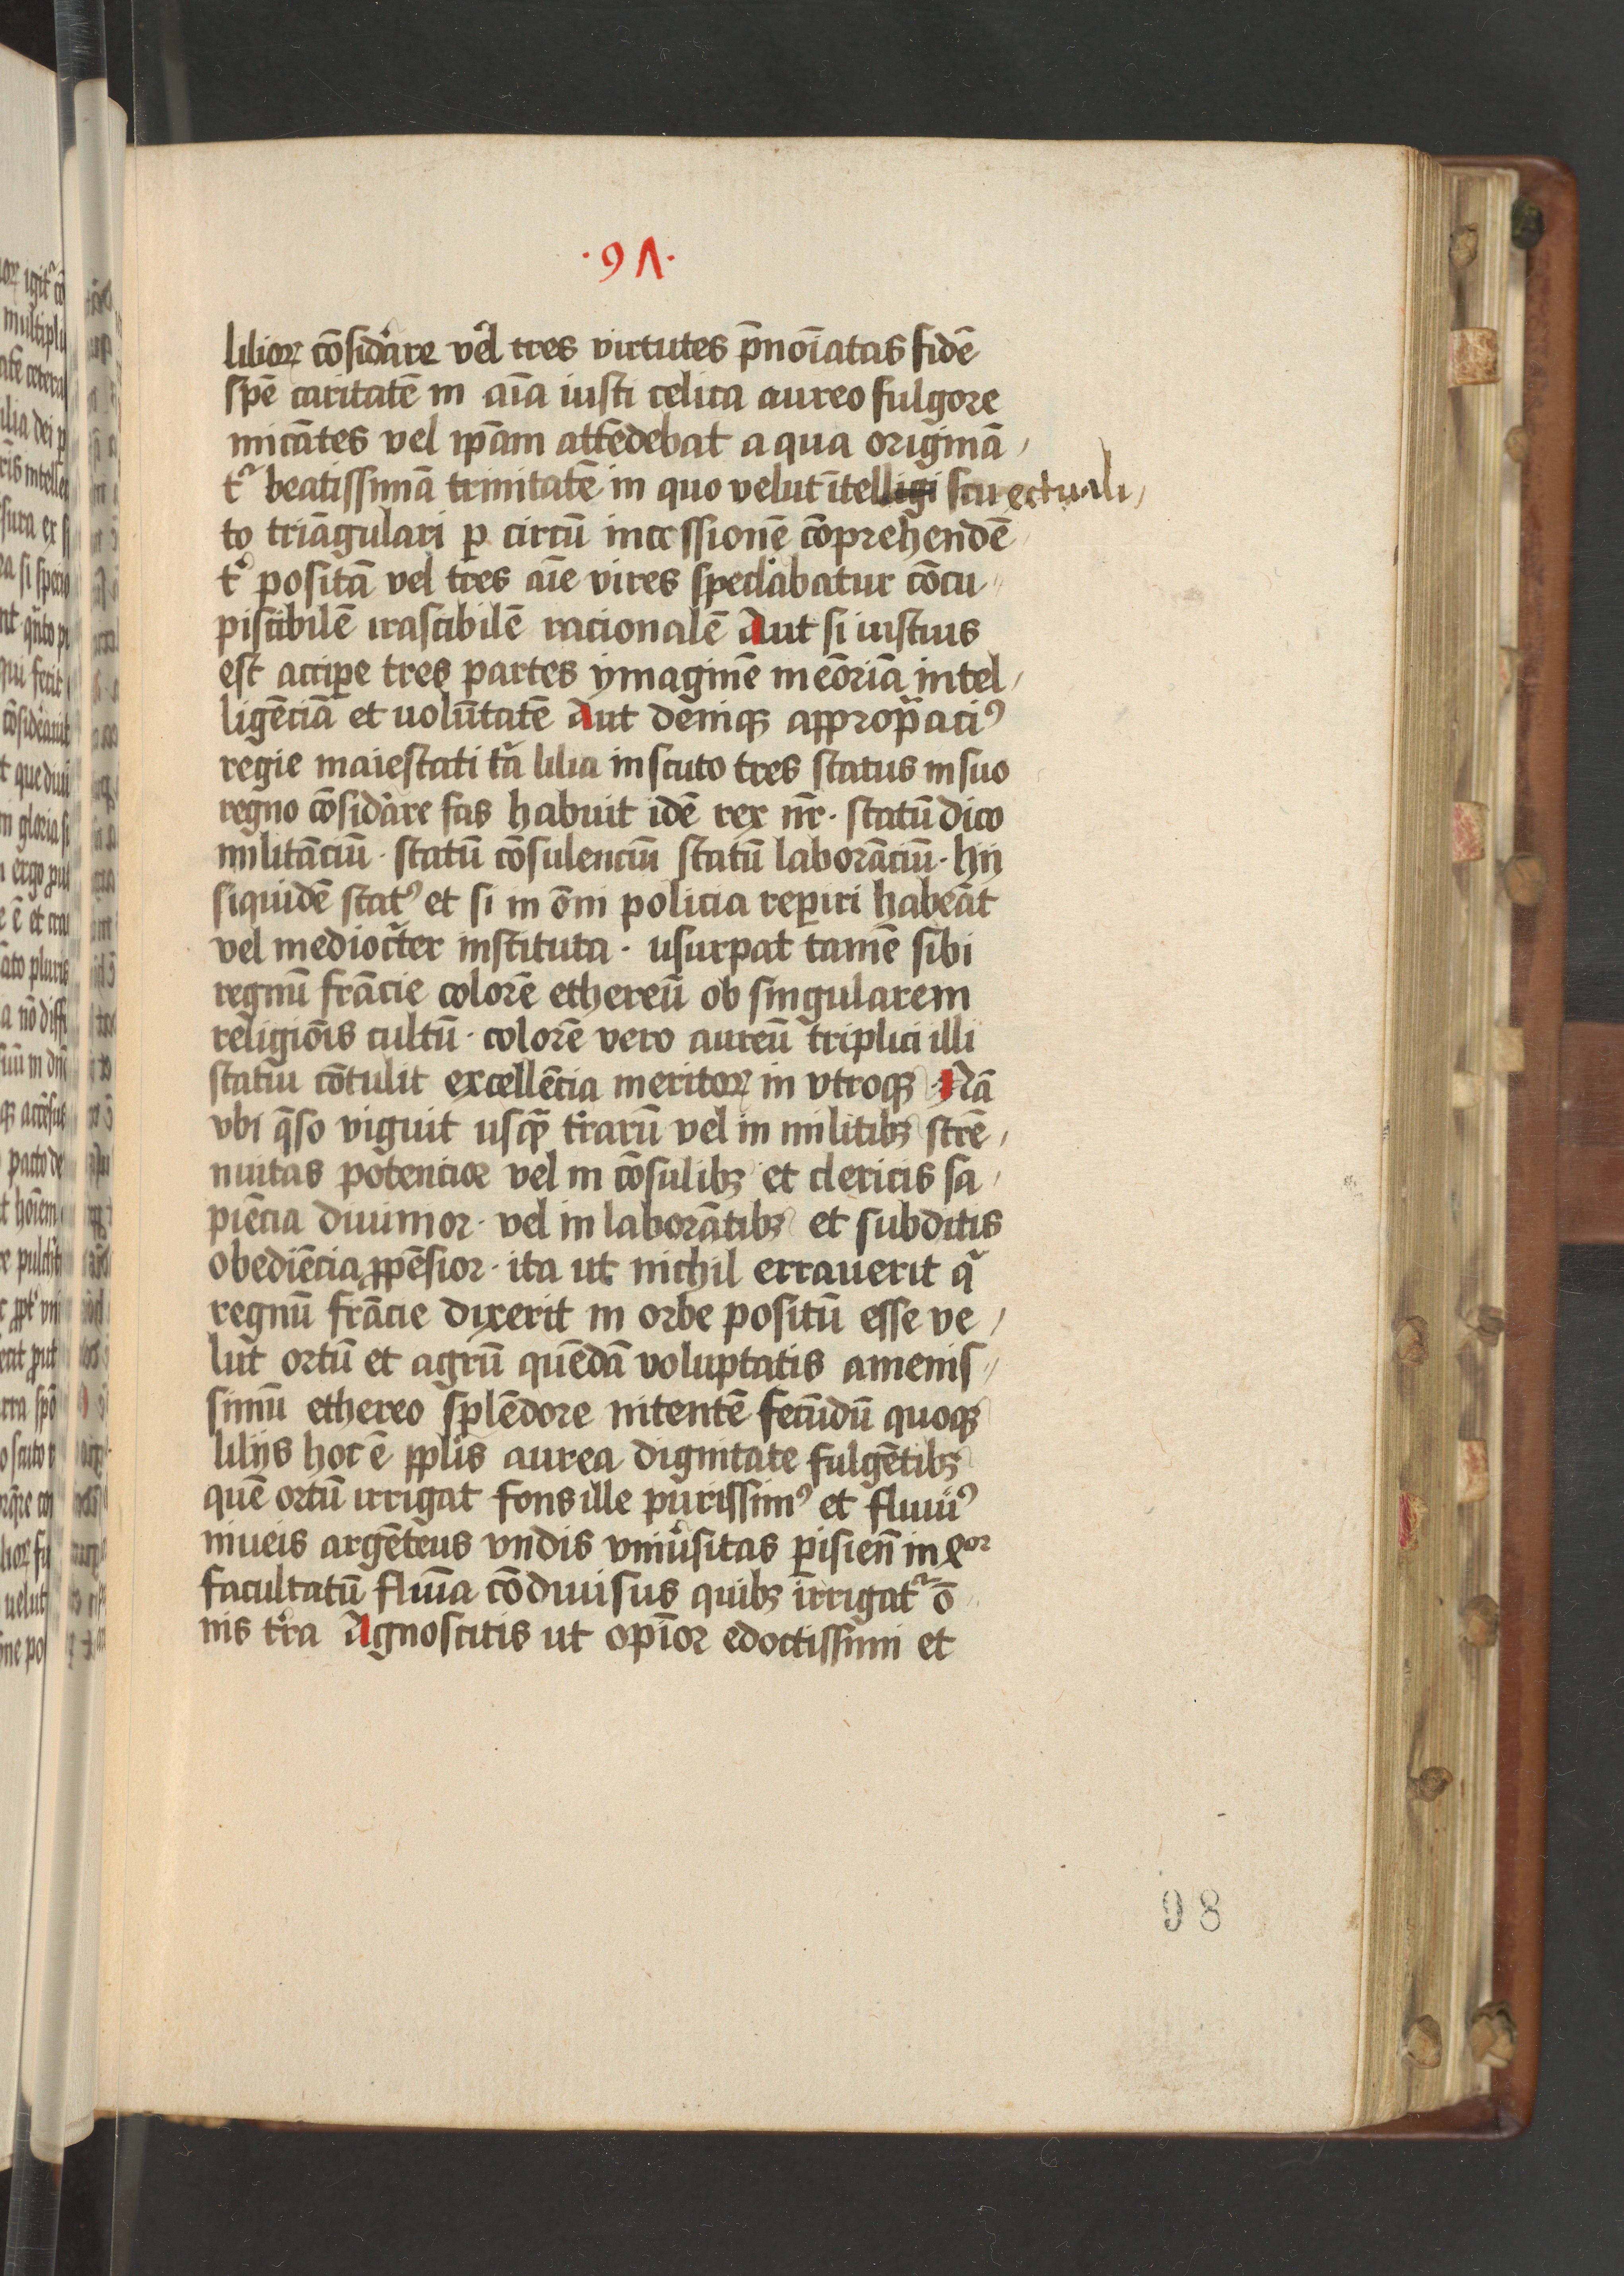 ·9Λ·
lilioꝝ cōsid̾are vel tres virtutes p̄noīatas fidē
spē caritatē in aīa iusti celica aureo fulgore
micātes vel ip̄am attēdebat a qua originā
tᷣ beatissimā trinitatē in quo velut ītelligi scu ectuali
to triāgulari ꝑ circū incessionē cōprehendē
tᷣ positā vel tres aīe vires spectabatur cōcu
piscibilē irascibilē racionalē Aut si iustius
est accipe tres partes ymaginē meōriā intel
ligēciā et uolūtatē Aut deniqꝫ appropͣaciꝰ
regie maiestati tͣa lilia in scuto tres status in suo
regno cōsid̾are fas habuit idē rex nr̄· statū dico
militāciū· statū cōsulenciū statū laborāciū· hij
siquidē statꝰ et si in ōni policia reꝑiri habeāt
vel medioct̾er instituta· usurpat tamē sibi
regnū frācie colorē ethereū ob singularem
religiōis cultū· colorē vero aureū triplici illi
statui cōtulit excellēcia meritoꝝ in vtroqꝫ Nā
vbi q̄so viguit usqͣ t̾rarū vel in militibꝫ strē
nuitas potencior vel in cōsulibꝫ et clericis sa
piēcia diuinior· vel in laborātibꝫ et subditis
obediēcia ꝓpēsior· ita ut nichil errauerit qͥ
regnū frācie dixerit in orbe positū esse ve
lut ortū et agrū quēdā voluptatis amenis
simū ethereo splēdore nitentē fecūdū quoqꝫ
lilijs hoc ē pplis̄ aurea dignitate fulgētibꝫ
quē ortū irrigat fons ille purissimꝰ et fluuiꝰ
niueis argēteus vndis vniu̾sitas ꝑisien̄ in
facultatū fluīa cōdiuisus quibꝫ irrigatᷣ ō
nis t̾ra Agnoscitis ut opīor edoctissimi et
98